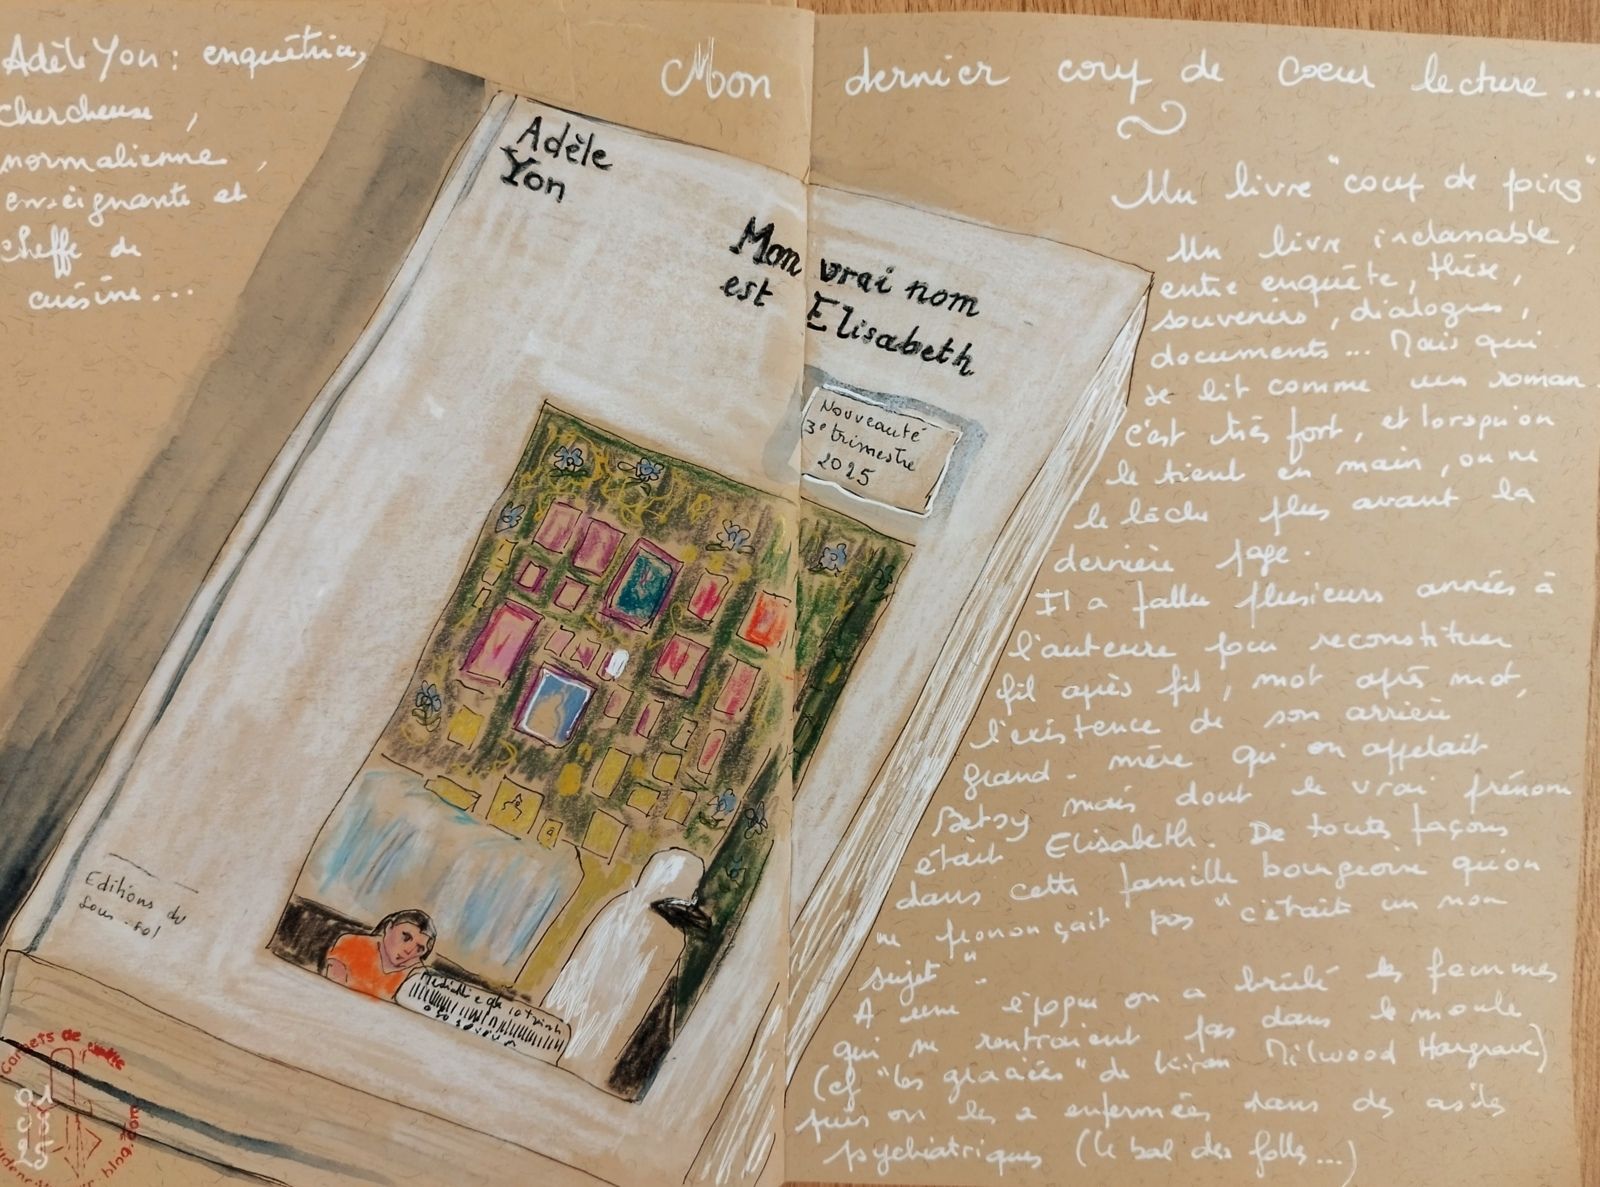 Mon dernier coup de coeur lecture...
Adèle Yon : enquêtrice,
chercheuse,
normalienne,
enseignante et
cheffe de
cuisine...
Adèle
Yon
Mon vrai nom
est Elisabeth
Nouveauté
3e trimestre
2025
Editions du
Sous-sol
Un livre "coup de poing"
Un livre inclassable,
entre enquête, thèse,
souvenirs, dialogues,
documents... Mais qui
se lit comme un roman.
C'est très fort, et lorsqu'on
le tient en main, on ne
le lâche plus avant la
dernière page.
Il a fallu plusieurs années à
l'auteure pour reconstituer
fil après fil, mot après mot,
l'existence de son arrière
grand-mère qu'on appelait
Betsy mais dont le vrai prénom
était Elisabeth. De toutes façons
dans cette famille bourgeoise qu'on
ne prononçait pas "c'était un non
sujet".
A une époque on a brûlé les femmes
qui ne rentraient pas dans le moule
(cf "les graciées" de Kiran Milwood Hargrave)
puis on les a enfermées dans des asiles
psychiatriques (le bal des folles...)
Carnets de